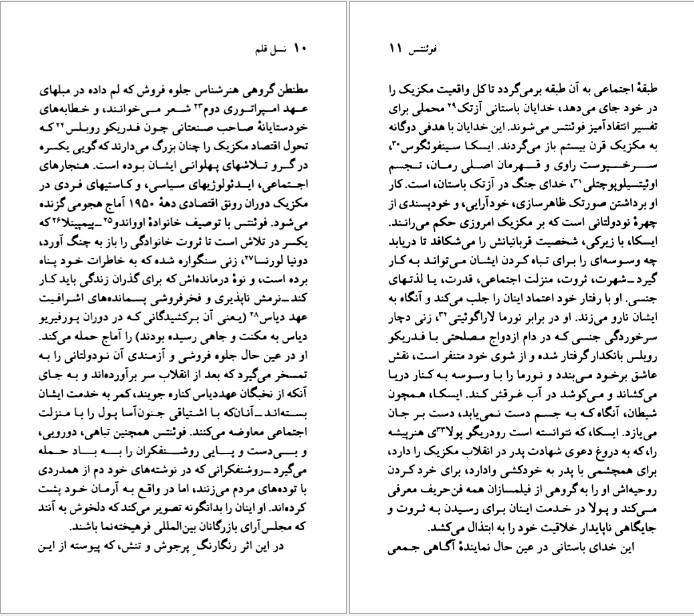 ۱۰ نسل قلم
مطنطن گروهی هنرشناس جلوه فروش که لم داده در مبلهای
عهد امپراتوری دوم۲۳ شعر می‌خوانند، و خطابه‌های
خودستایانهٔ صاحب صنعتانی چون فدریکو روبلس۲۴ که
تحول اقتصاد مکزیک را چنان بزرگ می‌دارند که گویی یکسره
در گرو تلاشهای پهلوانی ایشان بوده است. هنجارهای
اجتماعی، ایدئولوژیهای سیاسی، و کاستیهای فردی در
مکزیک دوران رونق اقتصادی دههٔ ۱۹۵۰ آماج هجومی گزنده
می‌شود. فوئنتس با توصیف خانوادهٔ اوواندو۲۵ـ پیمپینلا۲۶ که
یکسر در تلاش است تا ثروت خانوادگی را باز به چنگ آورد،
دونیا لورنسا۲۷، زنی سنگواره شده که به خاطرات خود پناه
برده است، و نوهٔ درمانده‌اش که برای گذران زندگی باید کار
کند ـ نرمش ناپذیری و فخرفروشی پسمانده‌های اشرافیت
عهد دیاس۲۸ (یعنی آن برکشیدگانی که در دوران پورفیریو
دیاس به مکنت و جاهی رسیده بودند) را آماج حمله می‌کند.
او در عین حال جلوه فروشی و آزمندی آن نودولتانی را به
تمسخر می‌گیرد که بعد از انقلاب سر برآورده‌اند و به جای
آنکه از نخبگان عهددیاس کناره جویند، کمر به خدمت ایشان
بسته‌اند ـ آنان‌که با اشتیاقی جنون‌آسا پول را با منزلت
اجتماعی معاوضه می‌کنند. فوئنتس همچنین تباهی، دورویی،
و بی‌دست و پایی روشنفکران را به باد حمله
می‌گیرد ـ روشنفکرانی که در نوشته‌های خود دم از همدردی
با توده‌های مردم می‌زنند، اما در واقع به آرمان خود پشت
کرده‌اند. او اینان را بدانگونه تصویر می‌کند که دلخوش به آنند
که مجلس آرای بازرگانان بین‌المللی فرهیخته‌نما باشند.
در این اثر رنگارنگِ پرجوش و تنش، که پیوسته از این
فوئنتس ۱۱
طبقهٔ اجتماعی به آن طبقه برمی‌گردد تا کل واقعیت مکزیک را
در خود جای می‌دهد، خدایان باستانی آزتک۲۹ محملی برای
تفسیر انتقادآمیز فوئنتس می‌شوند. این خدایان با هدفی دوگانه
به مکزیک قرن بیستم باز می‌گردند. ایسکا سینفوئگوس۳۰،
سرخپوست راوی و قهرمان اصلی رمان، تجسم
اوئیتسیلوپوچتلی۳۱، خدای جنگ در آزتک باستان، است. کار
او برداشتن صورتک ظاهرسازی، خودآرایی، و خودپسندی از
چهرهٔ نودولتانی است که بر مکزیک امروزی حکم می‌رانند.
ایسکا، با زیرکی، شخصیت قربانیانش را می‌شکافد تا دریابد
چه وسوسه‌ای را برای تباه کردن ایشان می‌تواند به کار
گیرد ـ شهرت، ثروت، منزلت اجتماعی، قدرت، یا لذتهای
جنسی. او با رفتار خود اعتماد اینان را جلب می‌کند و آنگاه به
ایشان نارو می‌زند. او در برابر نورما لاراگوئیتی۳۲، زنی دچار
سرخوردگی جنسی که در دام ازدواج مصلحتی با فدریکو
روبلس بانکدار گرفتار شده و از شوی خود متنفر است، نقش
عاشق برخود می‌بندد و نورما را با وسوسه به کنار دریا
می‌کشاند و می‌کوشد در آب غرقش کند. ایسکا، همچون
شیطان، آنگاه که به جسم دست نمی‌یابد، دست بر جان
می‌یازد. ایسکا، که نتوانسته است رودریگو پولا۳۳ی هنرپیشه
را، که به دروغ دعوی شهادت پدر در انقلاب مکزیک را دارد،
برای همچشمی با پدر به خودکشی وادارد، برای خرد کردن
روحیه‌اش او را به گروهی از فیلمسازان همه فن‌حریف معرفی
می‌کند و پولا در خدمت اینان برای رسیدن به ثروت و
جایگاهی ناپایدار خلاقیت خود را به ابتذال می‌کشد.
این خدای باستانی در عین حال نمایندهٔ آگاهی جمعی